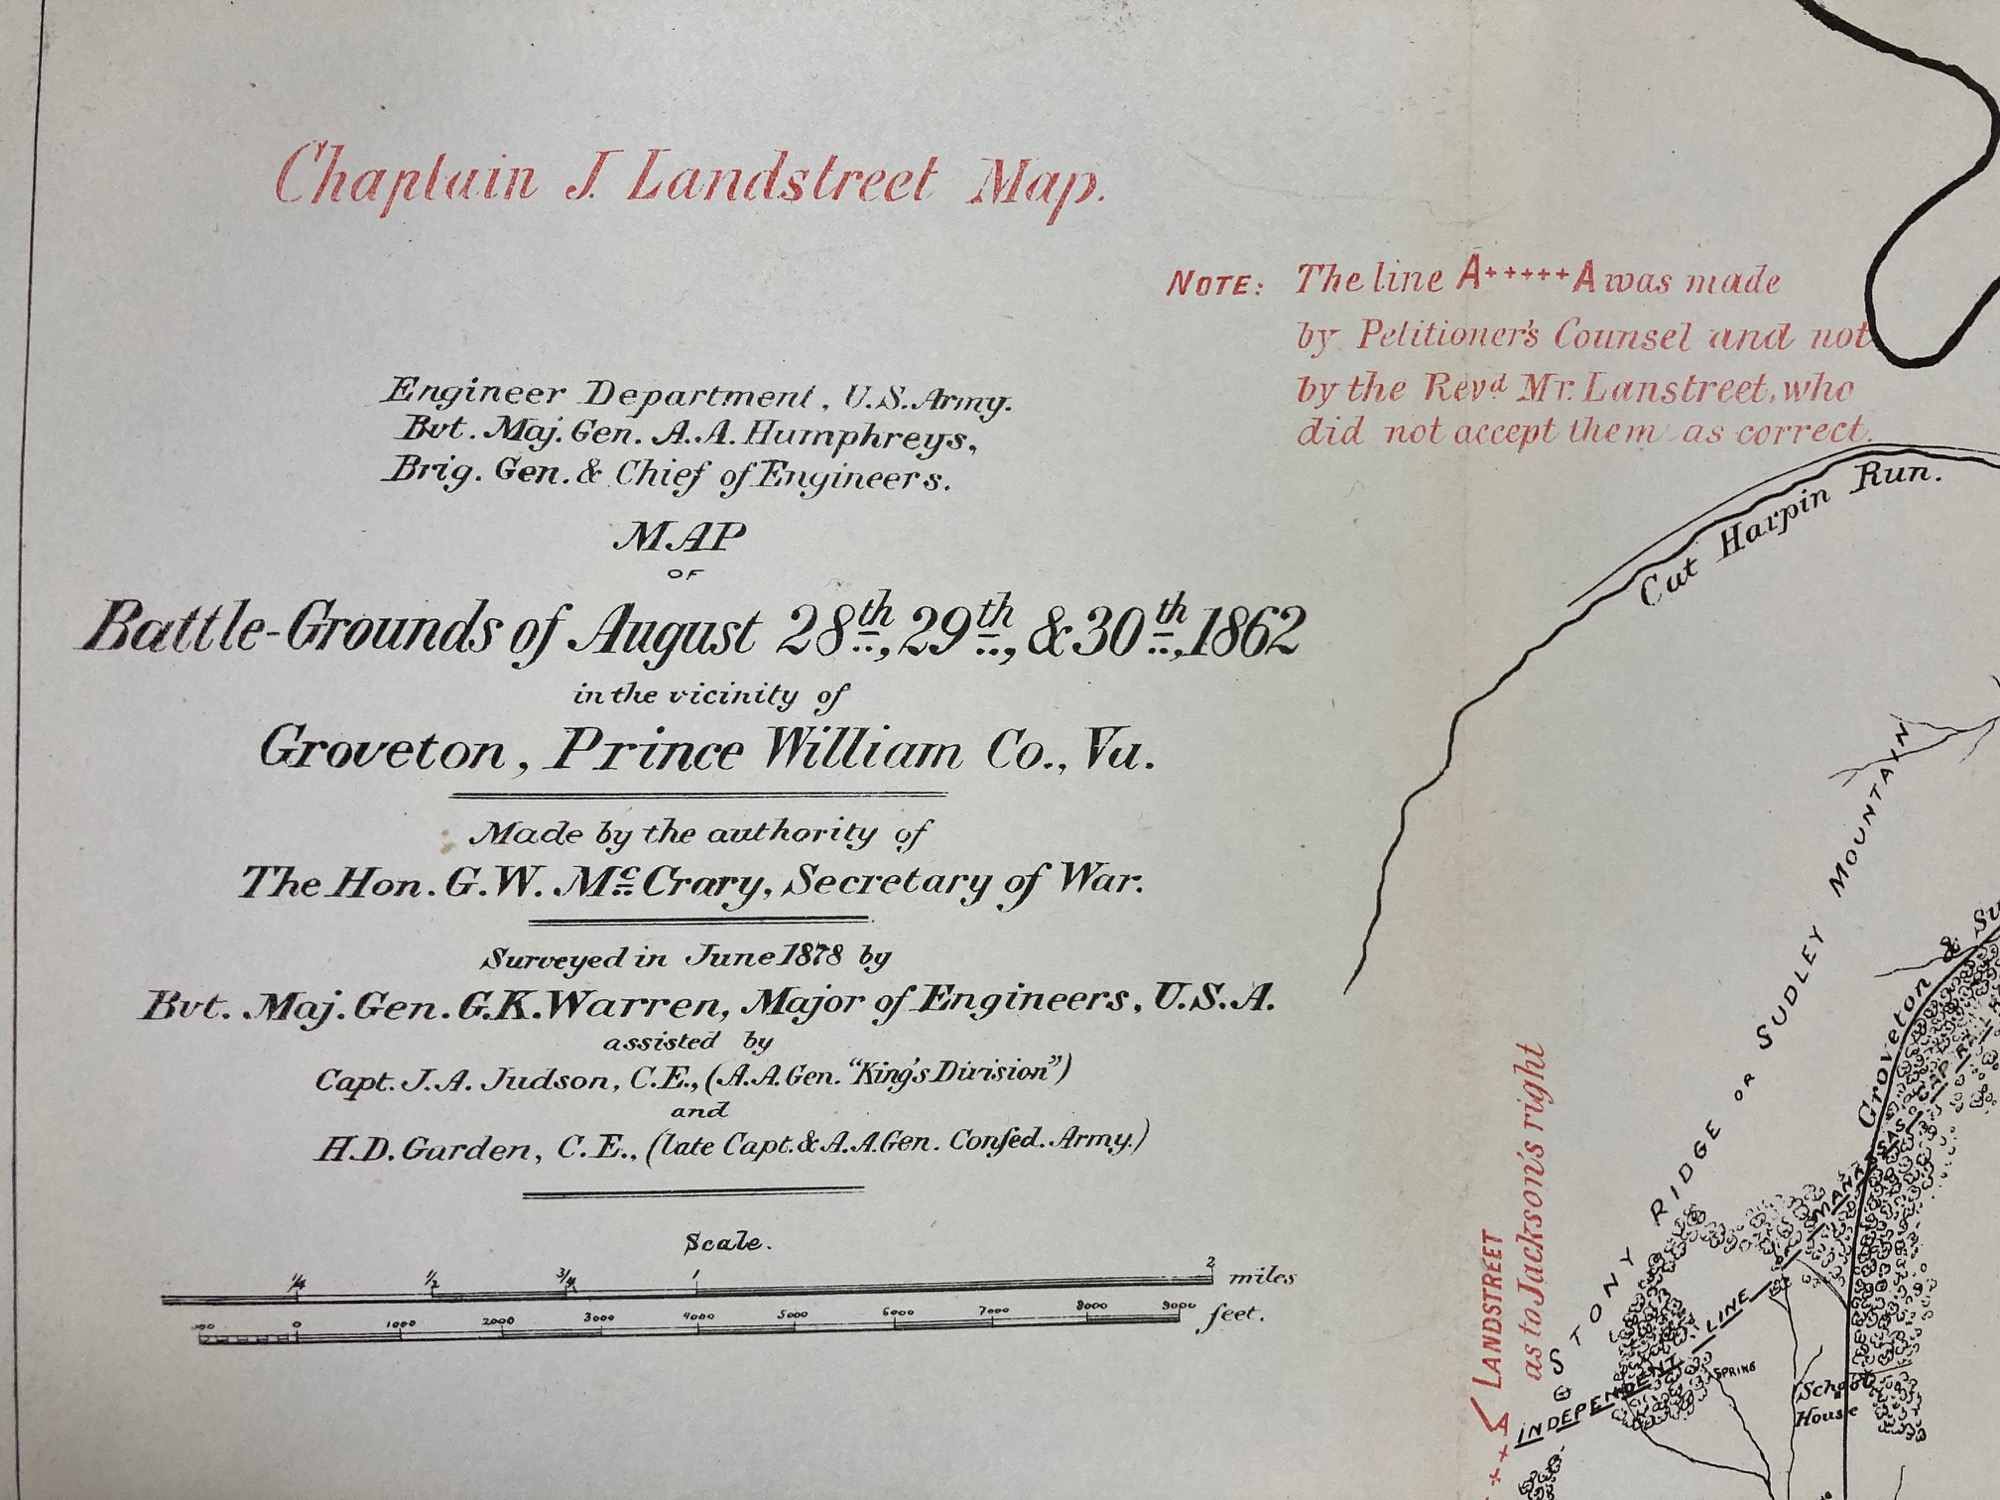 Chaplain J. Landstreet Map.
NOTE: The line A+++++A was made
by Petitioner's Counsel and not
by the Revd Mr. Lanstreet, who
did not accept them as correct.
Engineer Department, U.S. Army.
Bvt. Maj. Gen. A. A. Humphreys,
Brig. Gen. & Chief of Engineers.
MAP
OF
Battle-Grounds of August 28th, 29th, & 30th, 1862
in the vicinity of
Groveton, Prince William Co., Va.
Made by the authority of
The Hon. G. W. Mc Crary, Secretary of War.
Surveyed in June 1878 by
Bvt. Maj. Gen. G. K. Warren, Major of Engineers, U.S.A.
assisted by
Capt. J. A. Judson, C.E., (A. A. Gen. "King's Division")
and
H. D. Garden, C. E., (late Capt. & A. A. Gen. Confed. Army.)
Scale.
1/4 1/2 3/4 1 2 miles
500 0 1000 2000 3000 4000 5000 6000 7000 8000 9000 feet.
Cat Harpin Run.
STONY RIDGE OR SUDLEY MOUNTAIN
Groveton & Su
INDEPENDENT LINE MANASSAS GAP
SPRING
School
House
LANDSTREET
as to Jackson's right
++A